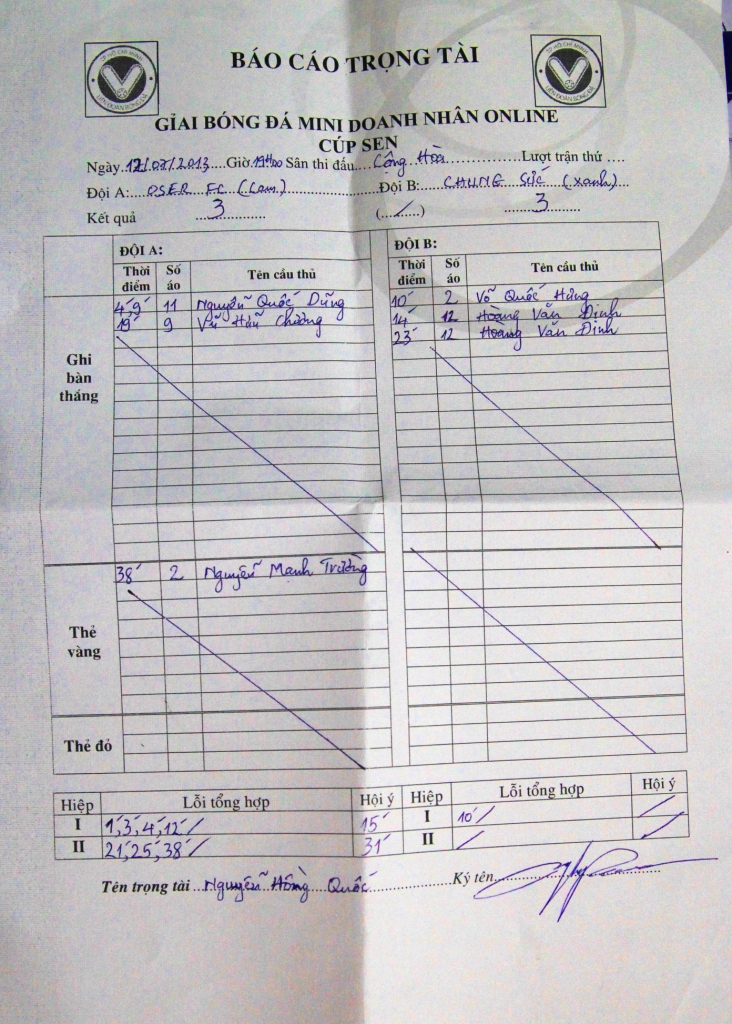 TP HỒ CHÍ MINH
LIÊN ĐOÀN BÓNG ĐÁ
BÁO CÁO TRỌNG TÀI
TP HỒ CHÍ MINH
LIÊN ĐOÀN BÓNG ĐÁ
GIẢI BÓNG ĐÁ MINI DOANH NHÂN ONLINE
CÚP SEN
Ngày 12/07/2013 Giờ 19H00 Sân thi đấu Cộng Hòa Lượt trận thứ ....
Đội A: OSER FC (Cam) Đội B: CHUNG SỨC (Xanh)
Kết quả 3 (.../...) 3
ĐỘI A: ĐỘI B:
Thời điểm Số áo Tên cầu thủ Thời điểm Số áo Tên cầu thủ
Ghi bàn thắng
4' 9' 11 Nguyễn Quốc Dũng 10' 2 Võ Quốc Hưng
19' 9 Vũ Hữu Chương 14' 12 Hoàng Văn Định
23' 12 Hoàng Văn Định
Thẻ vàng
38' 2 Nguyễn Mạnh Trường
Thẻ đỏ
Hiệp Lỗi tổng hợp Hội ý Hiệp Lỗi tổng hợp Hội ý
I 1',3',4',12'/ 15' I 10'/ /
II 21',25',38'/ 31' II / /
Tên trọng tài Nguyễn Hồng Quốc Ký tên